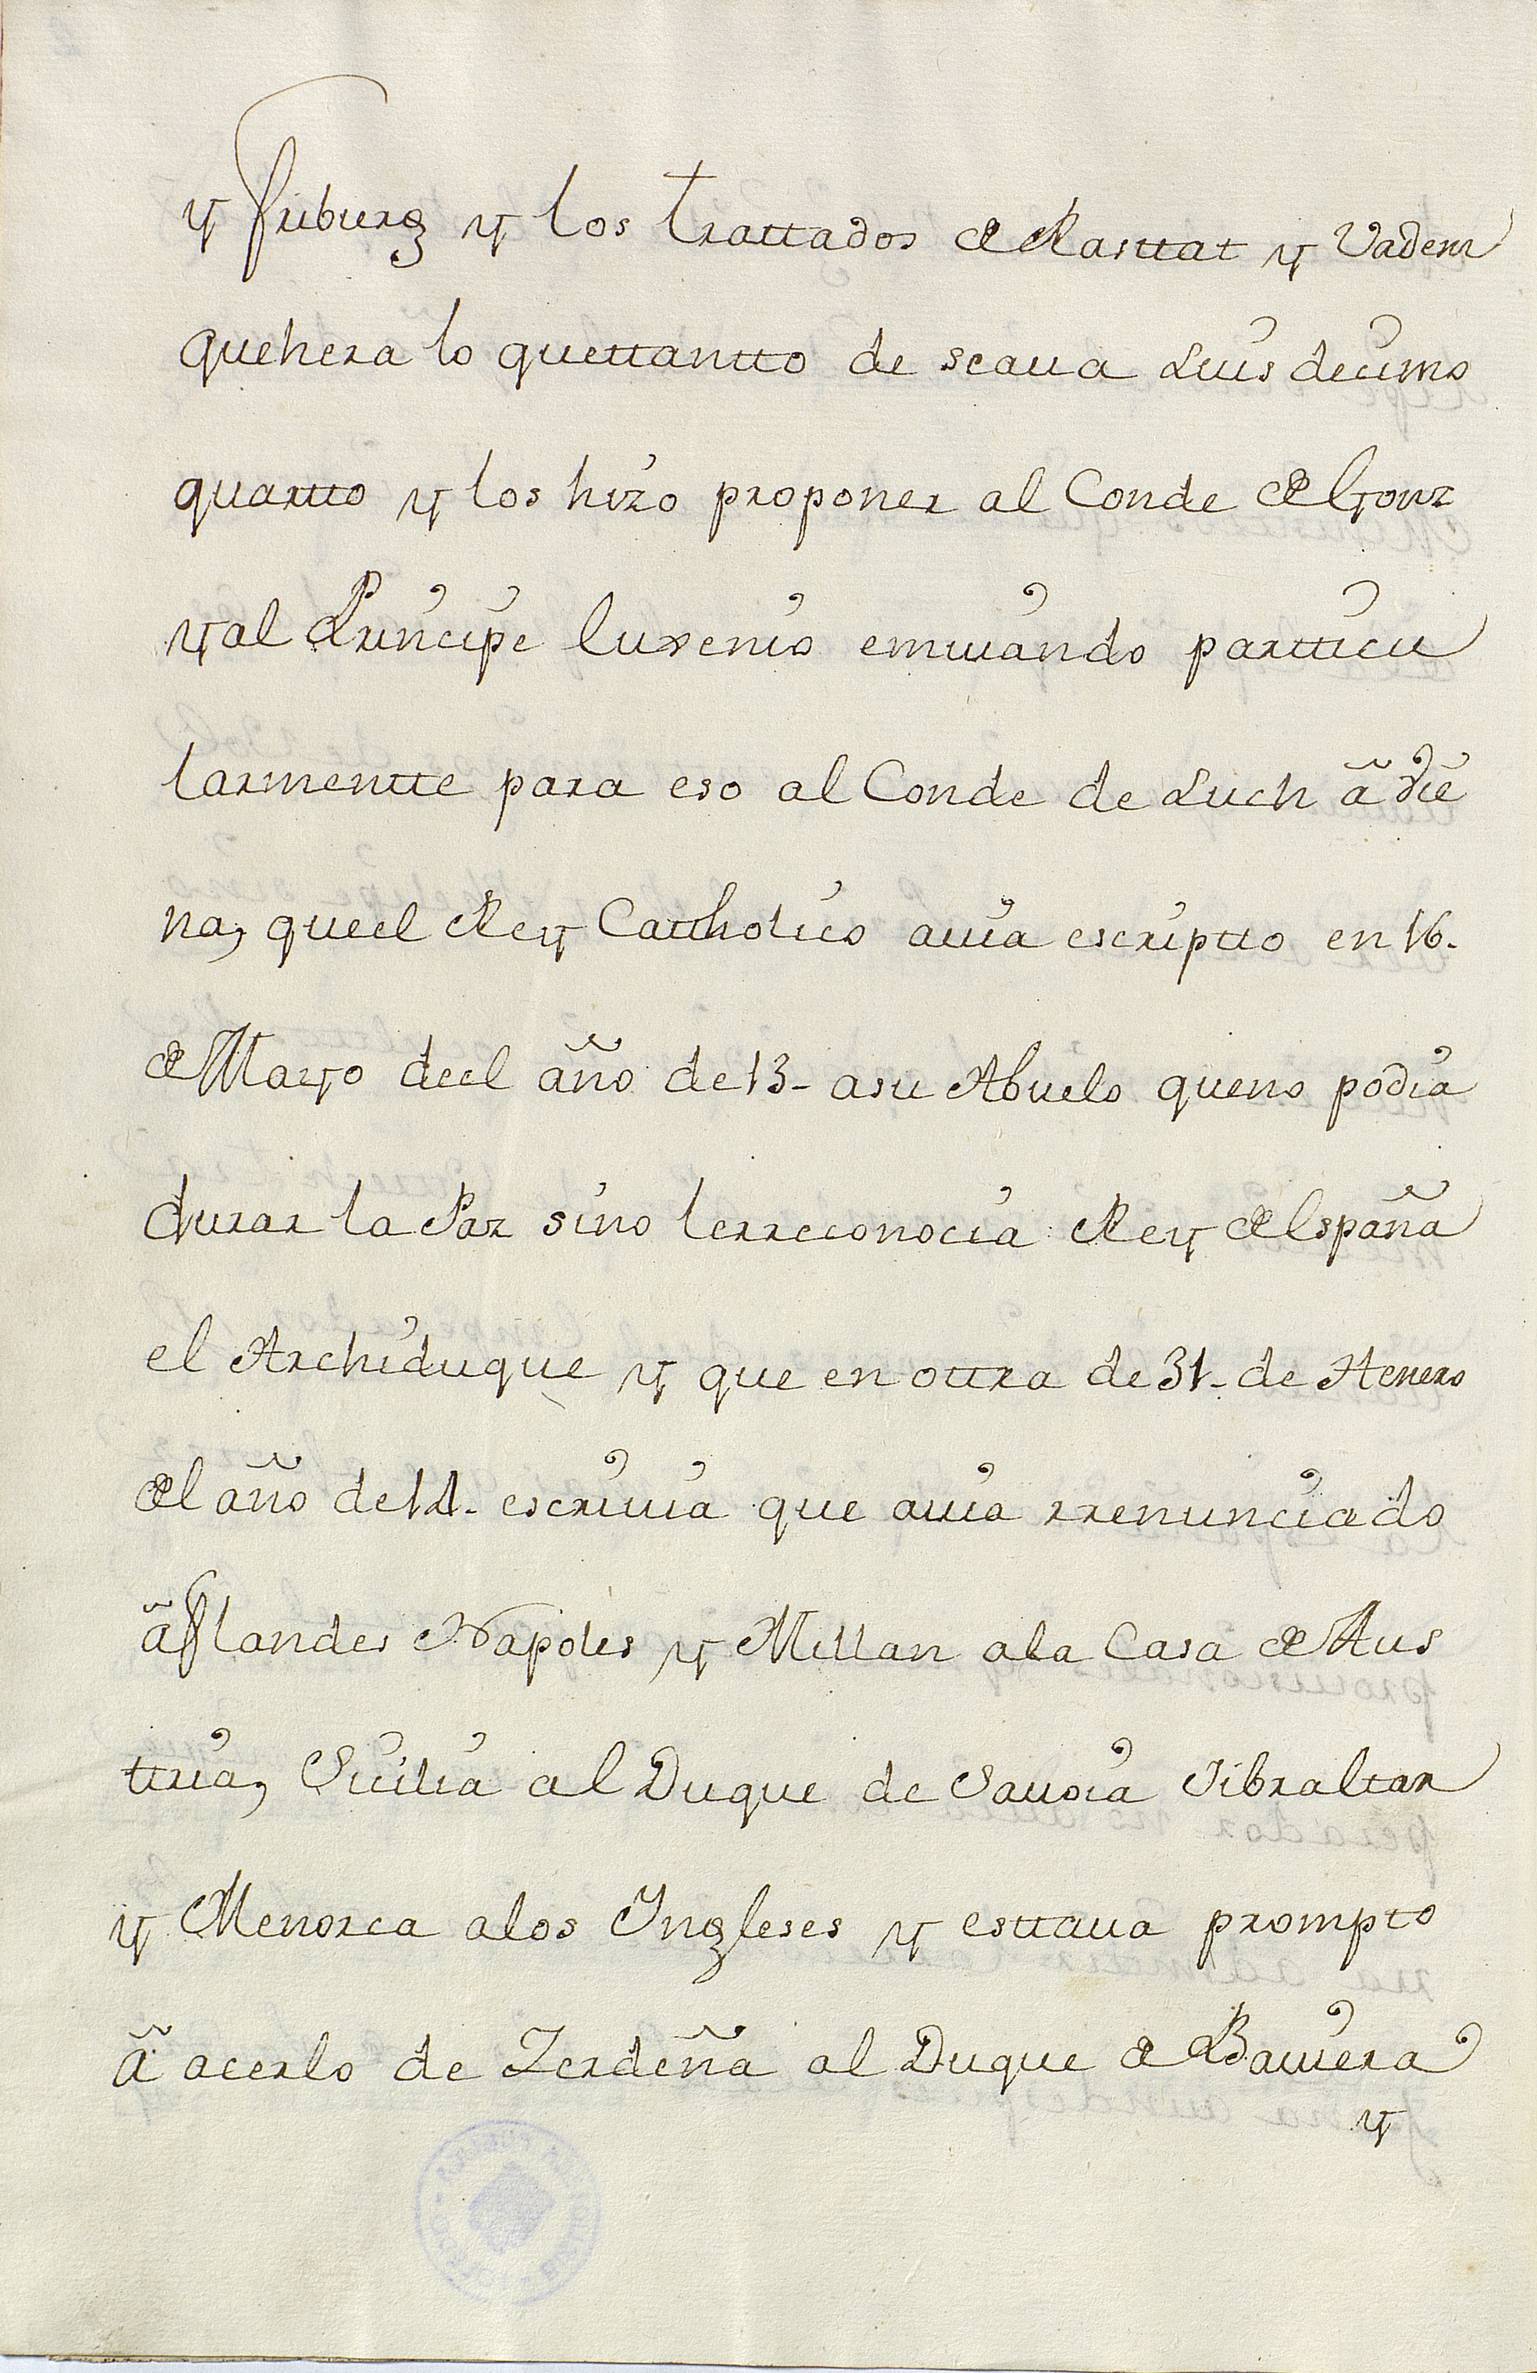 y Friburg y los trattados de Rasttat y Vaden
que hera lo que ttantto deseaua Luis decimo
quartto y los hizo proponer al Conde de Gonz
y al Principe Euxenio emuiando partticu
larmentte para eso al Conde de Luch â Vie
na, que el Rey Cattholico auia escriptto en 16.
de Mayo deel año de 13- a su Abuelo que no podia
durar la Paz sino le rreconocia Rey de España
el Archiduque y que en ottra de 31- de Henero
del año de 14- escriuia que auia rrenunciado
â Flandes Napoles y Millan a la Casa de Aus
ttria, Sicilia al Duque de Sauoia Jibraltar
y Menorca a los Ingleses y esttaua prompto
â acerlo de Zerdeña al Duque de Bauiera
y